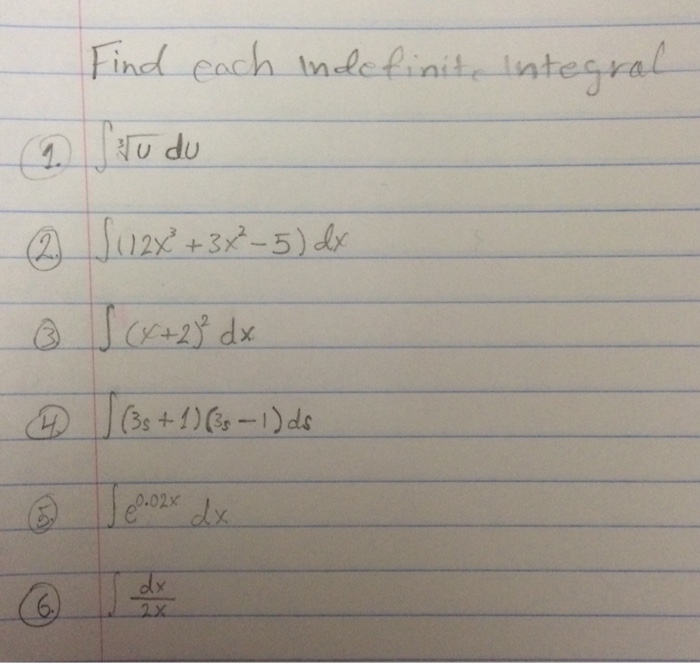 Find each indefinite integral
1. ∫ ∛u du
2. ∫(12x³ + 3x² - 5) dx
3 ∫ (x+2)² dx
4. ∫(3s + 1)(3s - 1) ds
5. ∫e^0.02x dx
6. ∫ dx/2x